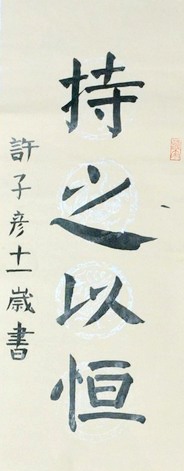 持之以恒
許子彦十一歲書